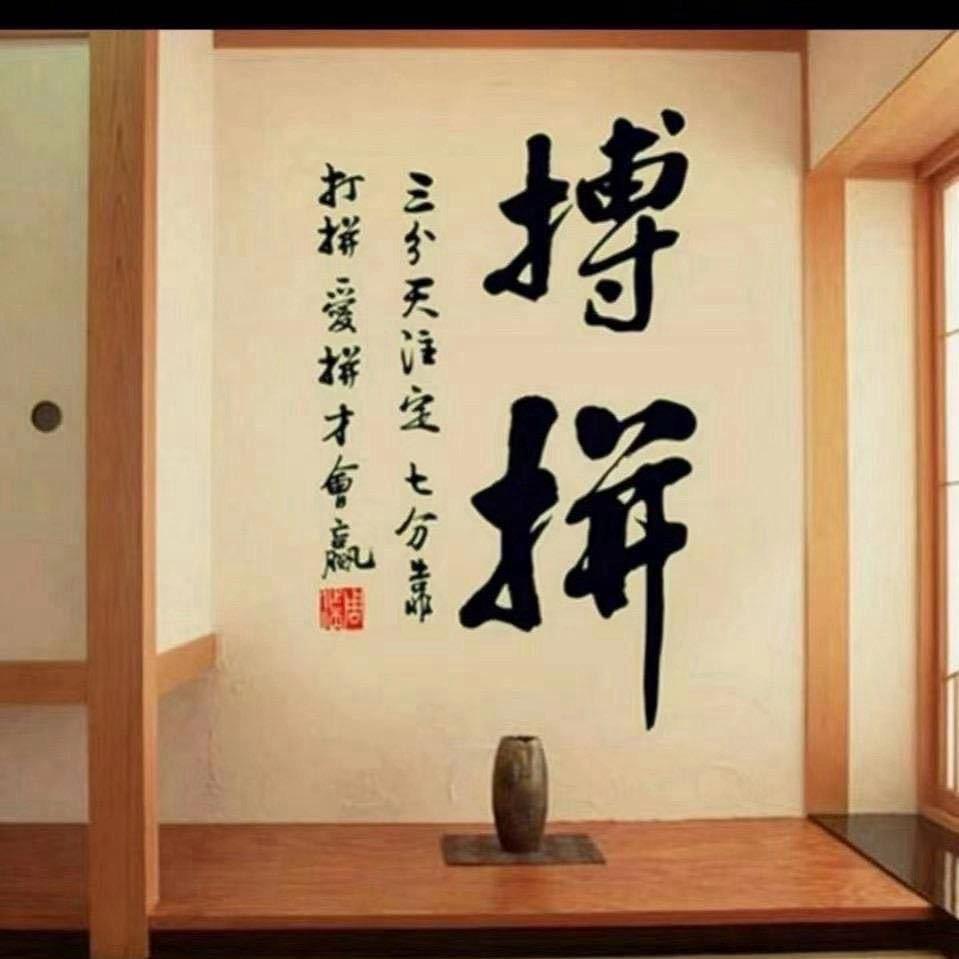 搏拼
三分天注定 七分靠
打拼愛拼才會贏